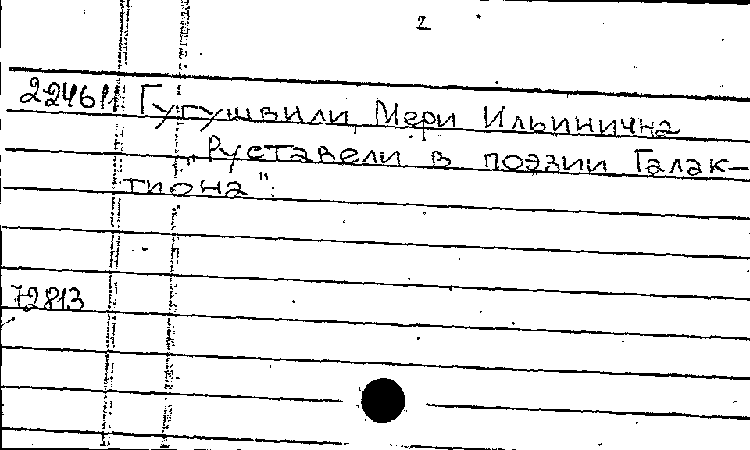 2
224611 Гугушвили Мери Ильинична
„Руставели в поэзии Галак-
тиона".
72813